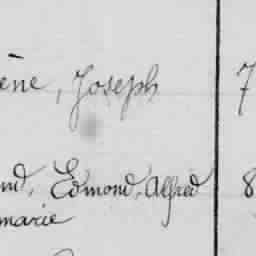 ène, Joseph 7
nd, Edmond, Alfred 8
marie